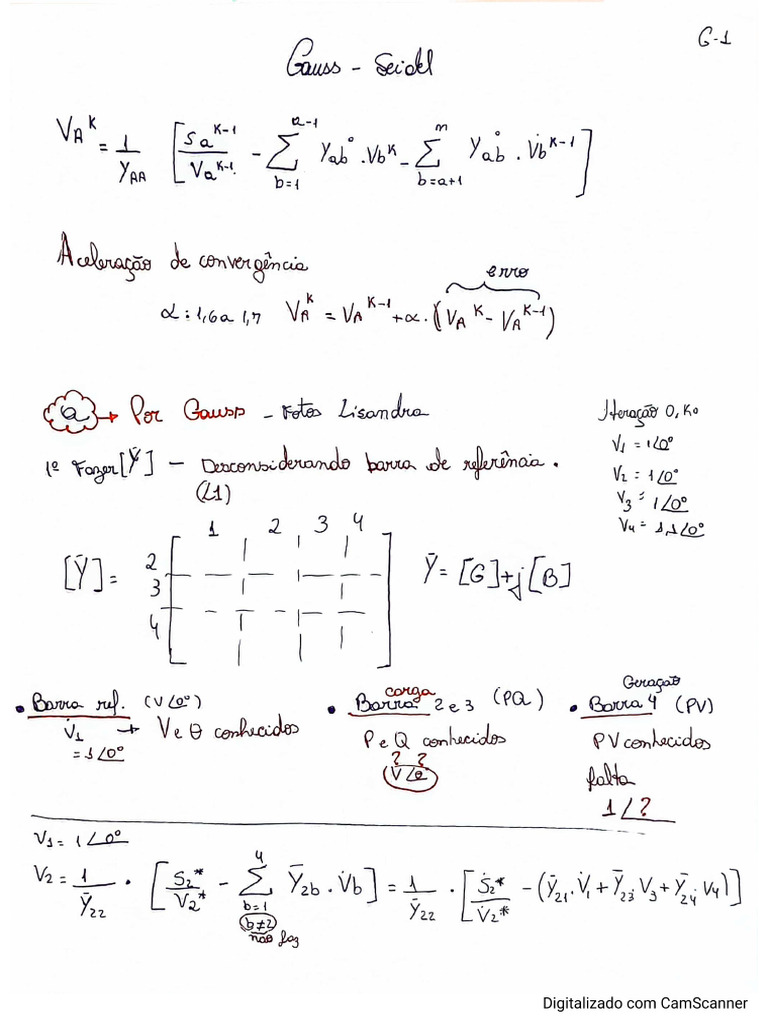 G-1
Gauss - Seidel
VA^K = 1/YAA [Sa^K-1/Va^K-1 - Σ(b=1)^(a-1) Yab° . Vb^K - Σ(b=a+1)^m Yab° . V̇b^K-1]
Aceleração de convergência
erro
α: 1,6 a 1,7 VA^K = VA^K-1 + α . (VA^K - VA^K-1)
a → Por Gauss - Fotos Lisandra
Iteração 0, K0
V1 = 1∠0°
V2 = 1∠0°
V3 = 1∠0°
V4 = 1,1∠0°
1º Fazer [Ȳ] - Desconsiderando barra de referência.
(L1)
1 2 3 4
[Ȳ] = 2 3 4
Ȳ = [G] + j[B]
• Barra ref. (V∠0°)
V̇1 → V e θ conhecidos
= 1∠0°
carga
• Barra 2 e 3 (PQ)
P e Q conhecidos
? ?
V∠θ
Geração
• Barra 4 (PV)
PV conhecidos
falta
1∠?
V1 = 1∠0°
V2 = 1/Ȳ22 • [S2*/V2* - Σ(b=1)^4 Ȳ2b . V̇b] = 1/Ȳ22 • [Ṡ2*/V̇2* - (Ȳ21 . V̇1 + Ȳ23 . V3 + Ȳ24 . V4)]
b≠2
não faz
Digitalizado com CamScanner